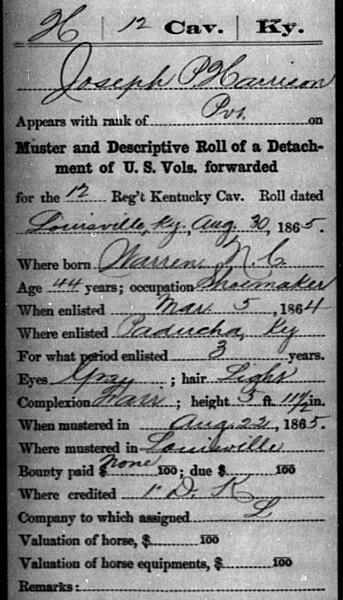 H | 12 Cav. | Ky.
Joseph P Harrison
Pvt.
Appears with rank of on
Muster and Descriptive Roll of a Detach-
ment of U. S. Vols. forwarded
for the 12 Reg't Kentucky Cav. Roll dated
Louisville, Ky., Aug. 30, 1865.
Where born Warren N. C.
Age 44 years; occupation Shoemaker
When enlisted Mar. 5, 1864
Where enlisted Paducha, Ky
For what period enlisted 3 years.
Eyes Gray ; hair Light
Complexion Fair ; height 5 ft. 11 1/2 in.
When mustered in Aug. 22, 1865.
Where mustered in Louisville
Bounty paid $ none 100; due $ 100
Where credited 1" D. K
Company to which assigned L
Valuation of horse, $ 100
Valuation of horse equipments, $ 100
Remarks: